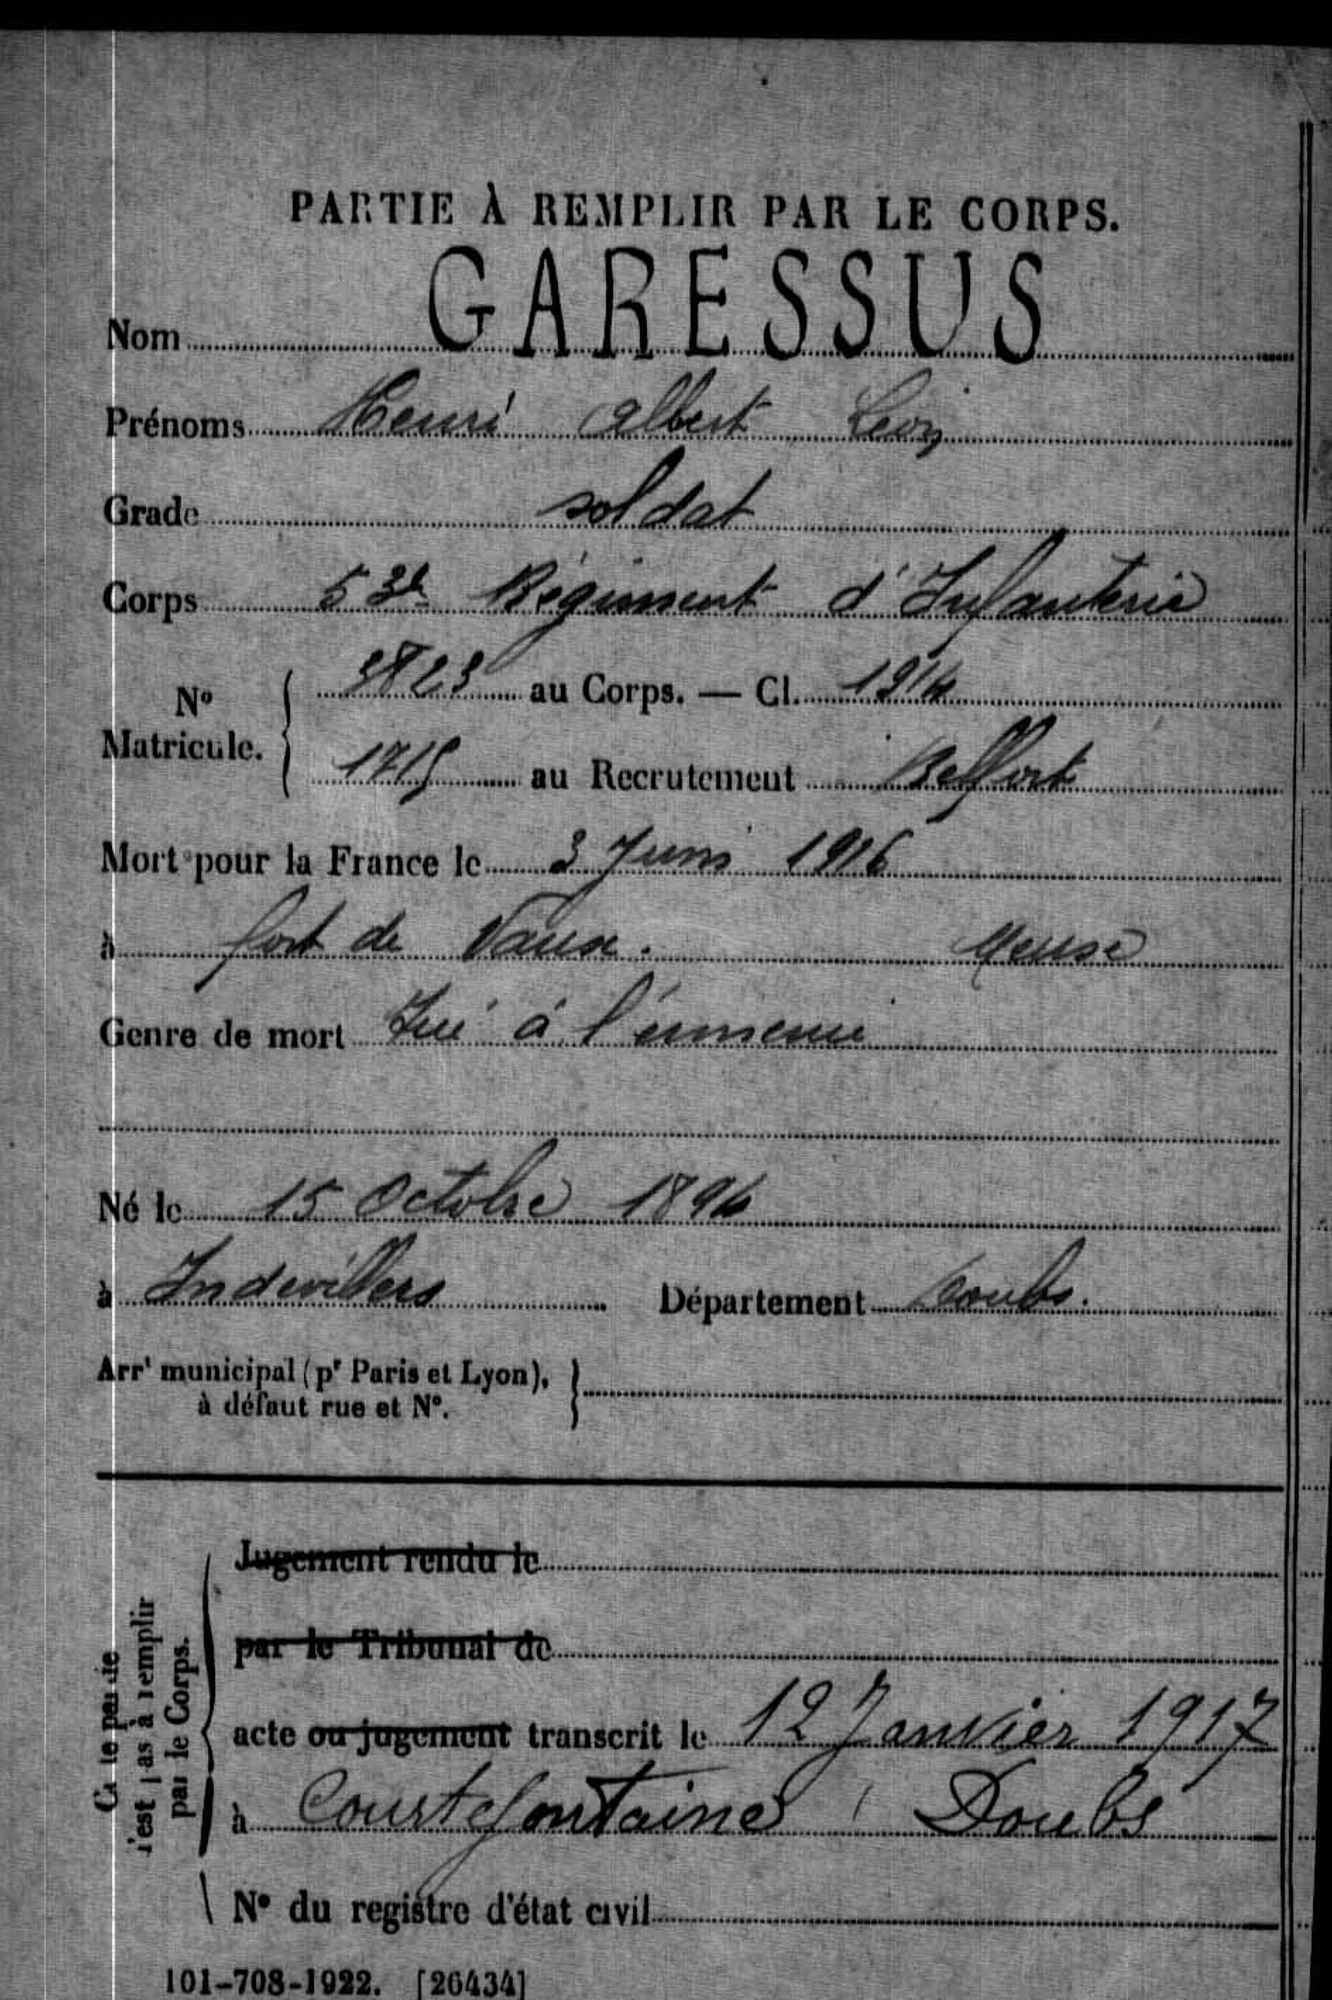 PARTIE À REMPLIR PAR LE CORPS.
Nom GARESSUS
Prénoms Henri Albert Léon
Grade soldat
Corps 53e Régiment d'Infanterie
No Matricule. { 9823 au Corps. — Cl. 1914
1715 au Recrutement Belfort
Mort pour la France le 3 Juin 1916
à fort de Vaux. Meuse
Genre de mort Tué à l'ennemi
Né le 15 Octobre 1894
à Indevillers Département Doubs.
Arrt municipal (pr Paris et Lyon), }
à défaut rue et No.
Cette partie n'est pas à remplir par le Corps.
Jugement rendu le
par le Tribunal de
acte ou jugement transcrit le 12 Janvier 1917
à Courtefontaine Doubs
No du registre d'état civil
101-708-1922. [26434]